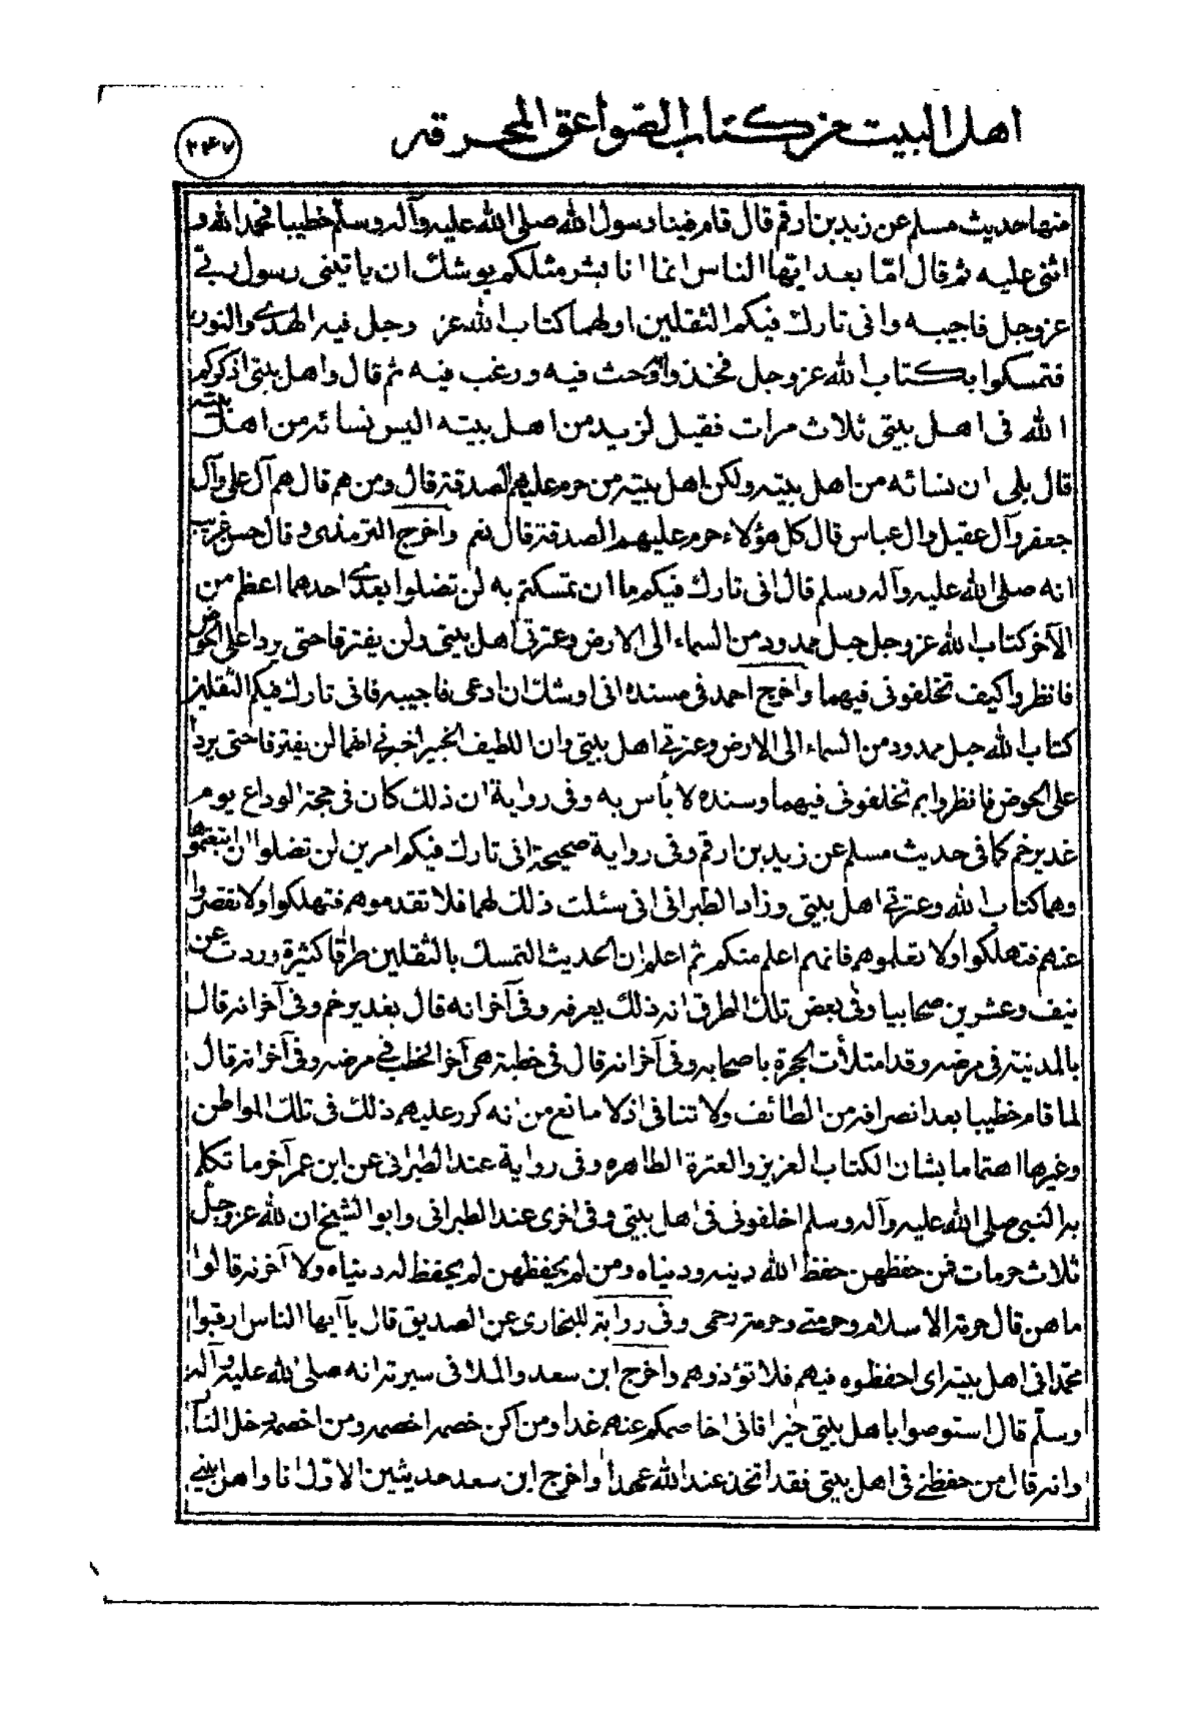 اهل البيت من كتاب الصواعق المحرقه
٢٤٧
منها حديث مسلم عن زيد بن ارقم قال قام فينا رسول الله صلى الله عليه وآله وسلم خطيبا فحمد الله و
اثنى عليه ثم قال امّا بعد ايّها الناس انما انا بشر مثلكم يوشك ان ياتينى رسول ربى
عز وجل فاجيبه وانى تارك فيكم الثقلين اولهما كتاب الله عز وجل فيه الهدى والنور
فتمسكوا بكتاب الله عز وجل فخذوا به وحث فيه ورغب فيه ثم قال واهل بيتى اذكركم
الله فى اهل بيتى ثلاث مرات فقيل لزيد من اهل بيته اليس نسائه من اهل بيته
قال بلى ان نسائه من اهل بيته ولكن اهل بيته من حرم عليهم الصدقة قال ومن هم قال هم آل على وآل
جعفر وآل عقيل وال عباس قال كل هؤلاء حرم عليهم الصدقة قال نعم واخرج الترمذى وقال حسن غريب
انه صلى الله عليه وآله وسلم قال انى تارك فيكم ما ان تمسكتم به لن تضلوا بعدى احدهما اعظم من
الآخر كتاب الله عز وجل حبل ممدود من السماء الى الارض وعترتى اهل بيتى ولن يفترقا حتى يردا على الحوض
فانظروا كيف تخلفونى فيهما واخرج احمد فى مسنده انى اوشك ان ادعى فاجيبه فانى تارك فيكم الثقلين
كتاب الله حبل ممدود من السماء الى الارض وعترتى اهل بيتى وان اللطيف الخبير اخبرنى انهما لن يفترقا حتى يردا
على الحوض فانظروا بم تخلفونى فيهما وسنده لا بأس به وفى رواية ان ذلك كان فى حجة الوداع يوم
غدير خم كما فى حديث مسلم عن زيد بن ارقم وفى رواية صحيحة انى تارك فيكم امرين لن تضلوا ان اتبعتموها
وهما كتاب الله وعترتى اهل بيتى وزاد الطبرانى انى سئلت ذلك لهما فلا تقدموهم فتهلكوا ولا تقصروا
عنهم فتهلكوا ولا تعلموهم فانهم اعلم منكم ثم اعلم ان لحديث التمسك بالثقلين طرقا كثيرة وردت عن
نيف وعشرين صحابيا وفى بعض تلك الطرق انه ذلك بعرفه وفى آخر انه قال بغدير خم وفى آخر انه قال
بالمدينة فى مرضه وقد امتلأت الحجرة باصحابه وفى آخر انه قال فى خطبة هى آخر الخطب فى مرضه وفى آخر انه قال
لما قام خطيبا بعد انصرافه من الطائف ولا تنافى اذ لا مانع من انه كرر عليهم ذلك فى تلك المواطن
وغيرها اهتماما بشان الكتاب العزيز والعترة الطاهره وفى رواية عند الطبرانى عن ابن عمر آخر ما تكلم
به النبى صلى الله عليه وآله وسلم اخلفونى فى اهل بيتى وفى اخرى عند الطبرانى وابو الشيخ ان لله عز وجل
ثلاث حرمات فمن حفظهن حفظ الله دينه ودنياه ومن لم يحفظهن لم يحفظ له دنياه ولا آخرته قالوا
ما هن قال حرمة الاسلام وحرمتى وحرمة رحمى وفى رواية للبخارى عن الصديق قال يا آيها الناس ارقبوا
محمّدا فى اهل بيته اى احفظوه فيهم فلا تؤذوهم واخرج ابن سعد والملا فى سيرته انه صلى الله عليه وآله
وسلّم قال استوصوا باهل بيتى خيرا فانى اخاصمكم عنهم غدا ومن اكن خصمه اخصمه ومن اخصمه دخل النار
وانه قال من حفظنى فى اهل بيتى فقد اتخذ عند الله عهدا واخرج ابن سعد حديثين الاول انا واهل بيتى